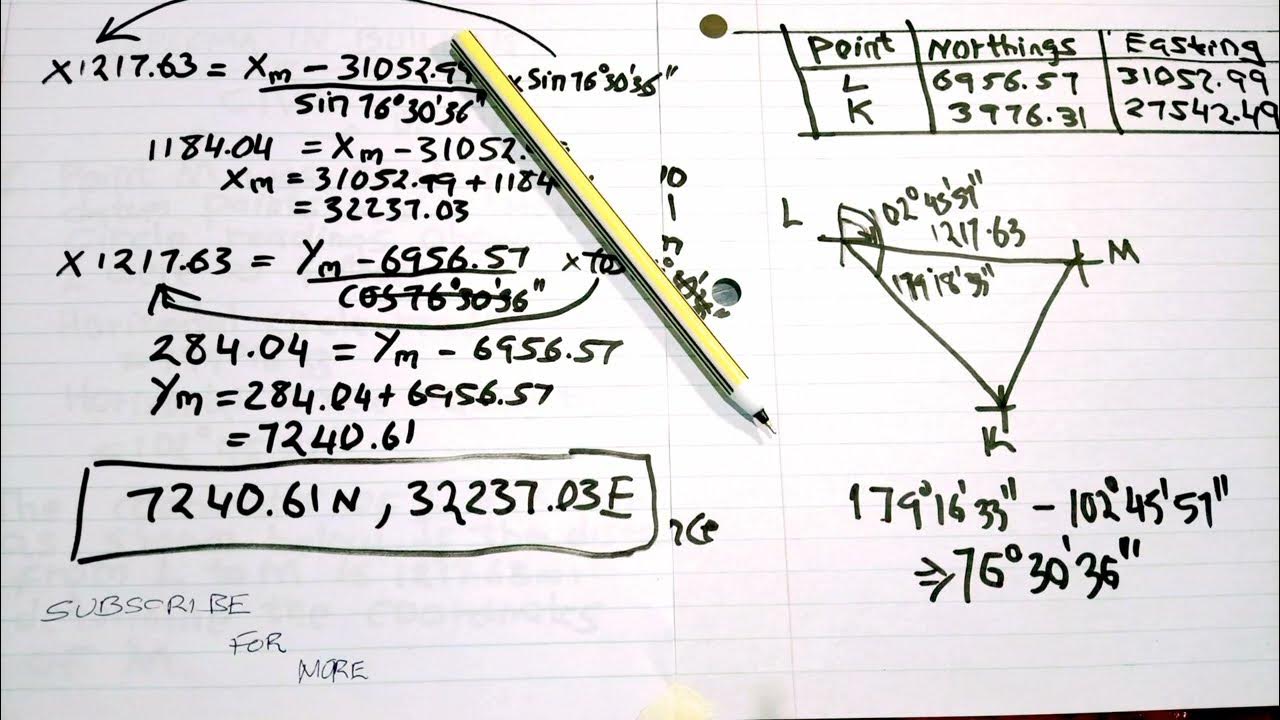 x1217.63 = Xm - 31052.99 x sin 76°30'36"
sin 76°30'36"
1184.04 = Xm - 31052.
Xm = 31052.99 + 1184
= 32237.03
x1217.63 = Ym - 6956.57
cos 76°30'36"
284.04 = Ym - 6956.57
Ym = 284.04 + 6956.57
= 7240.61
7240.61N, 32237.03E
SUBSCRIBE
FOR
MORE
Point Northings Easting
L 6956.57 31052.99
K 3976.31 27542.49
L
102°45'57"
1217.63
M
K
179°16'33" - 102°45'57"
⇒ 76°30'36"